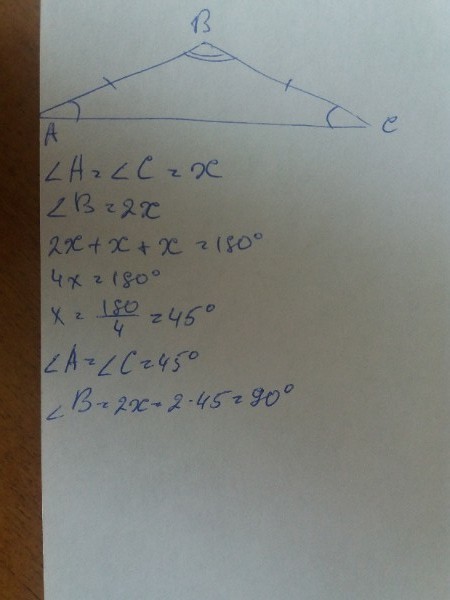 B
A C
∠A = ∠C = x
∠B = 2x
2x + x + x = 180°
4x = 180°
x = 180/4 = 45°
∠A = ∠C = 45°
∠B = 2x = 2·45 = 90°